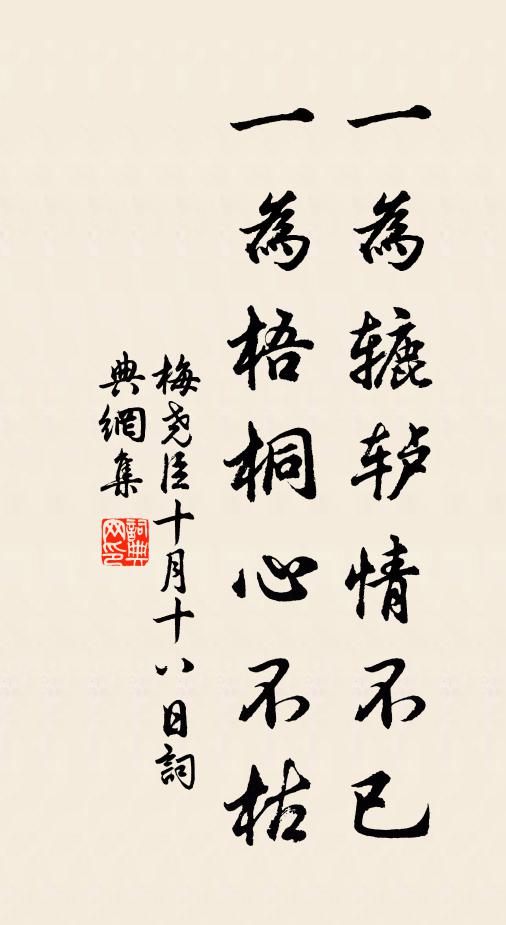 一為辘轳情不已
一為梧桐心不枯
梅尧臣十月十八日詞
典網集
詞典
网印